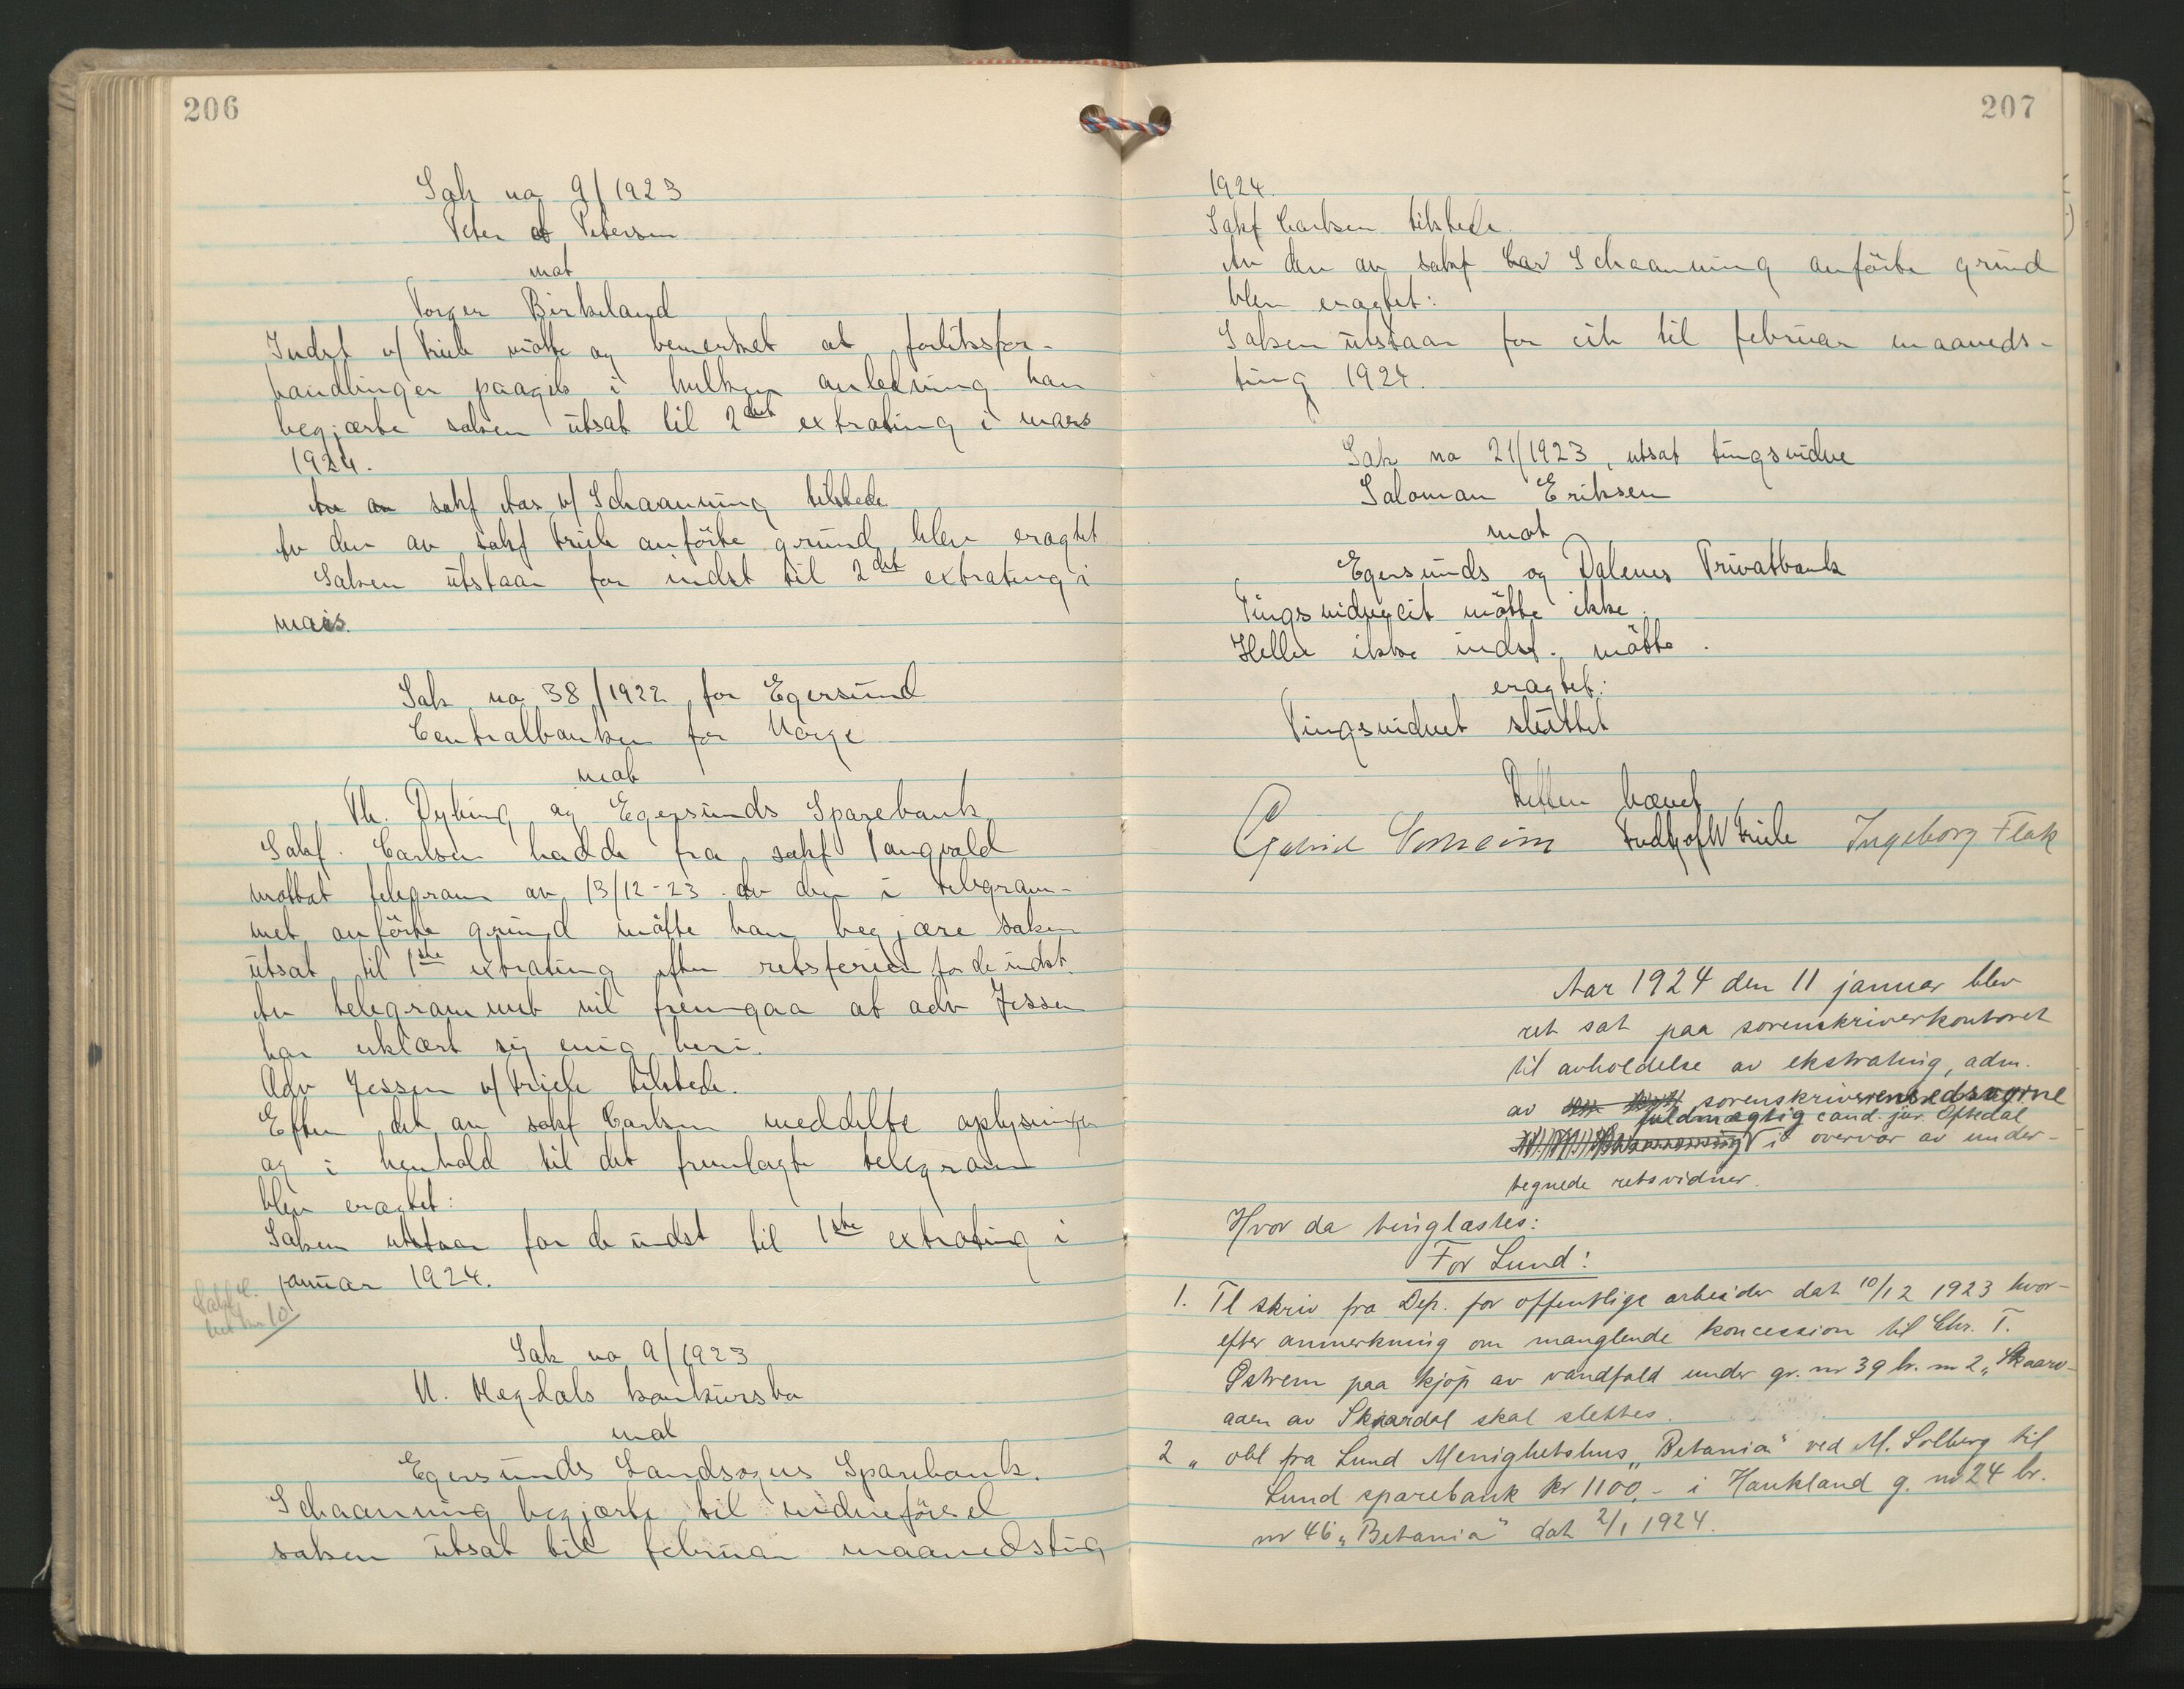 206
Sak no 9/1923
Peter Petersen
mot
Torger Birkeland
Indst v/ Kiele mötte og bemerket at forliksfor-
handlinger paagik i hvilken anledning han
begjærte saken utsat til 2det extrating i mars
1924.
sakf Aas v/ Schaanning tilstede
Av den av sakf Kiele anförte grund blev eragtet
Saken utstaar for indst til 2det extrating i
mars.
Sak no 38/1922 for Egersund
Centralbanken for Norge
mot
Th. Dybing og Egersunds Sparebank
Sakf. Carlsen hadde fra sakf Tangvald
mottat telegram av 13/12-23. Av den i telegram-
met anförte grund mötte han begjære saken
utsat til 1ste extrating efter retsferien for de indst.
Av telegrammet vil fremgaa at adv Jessen
har erklært sig enig heri.
Adv Jessen v/ Kiele tilstede.
Efter det av sakf Carlsen meddelte oplysninger
og i henhold til det fremlagte telegram
blev eragtet:
Saken utstaar for de indst til 1ste extrating i
januar 1924.
Sak no 9/1923
N. Hegdals konkursbo
mot
Egersunds Landsogns Sparebank.
Schaanning begjærte til vidneförsel
saken utsat til februar maanedsting
207
1924.
Sakf Carlsen tilstede.
Av den av sakf Schaanning anförte grund
blev eragtet:
Saken utstaar for cit til februar maaneds-
ting 1924.
Sak no 21/1923, utsat tingsvidne
Saloman Eriksen
mot
Egersunds og Dalenes Privatbank
Tingsvidnecit mötte ikke.
Heller ikke indst. mötte.
eragtet:
Tingsvidnet sluttet
Retten hævet
Gabriel Kiele Ingeborg Flek
Aar 1924 den 11 januar blev
ret sat paa sorenskriverkontoret
til avholdelse av ekstrating, adm.
av sorenskriverens edsvorne
fuldmægtig cand. jur. Oftedal
i overvær av under-
tegnede retsvidner.
Hvor da tinglæstes:
For Lund:
1. Tl skriv fra Dep. for offentlige arbeider dat 10/12 1923 hvor-
efter anmerkning om manglende koncession til Chr. T.
Østrem paa kjøp av vandfald under gr. nr 39 br. nr 2 „Skaar-
aaen av Skaardal skal slettes.
2 „ obl fra Lund Menighetshus „Betania" ved M. Solberg til
Lund sparebank kr 1100,- i Haukland g. nr 24 br.
nr 46 „Betania" dat 2/1 1924.